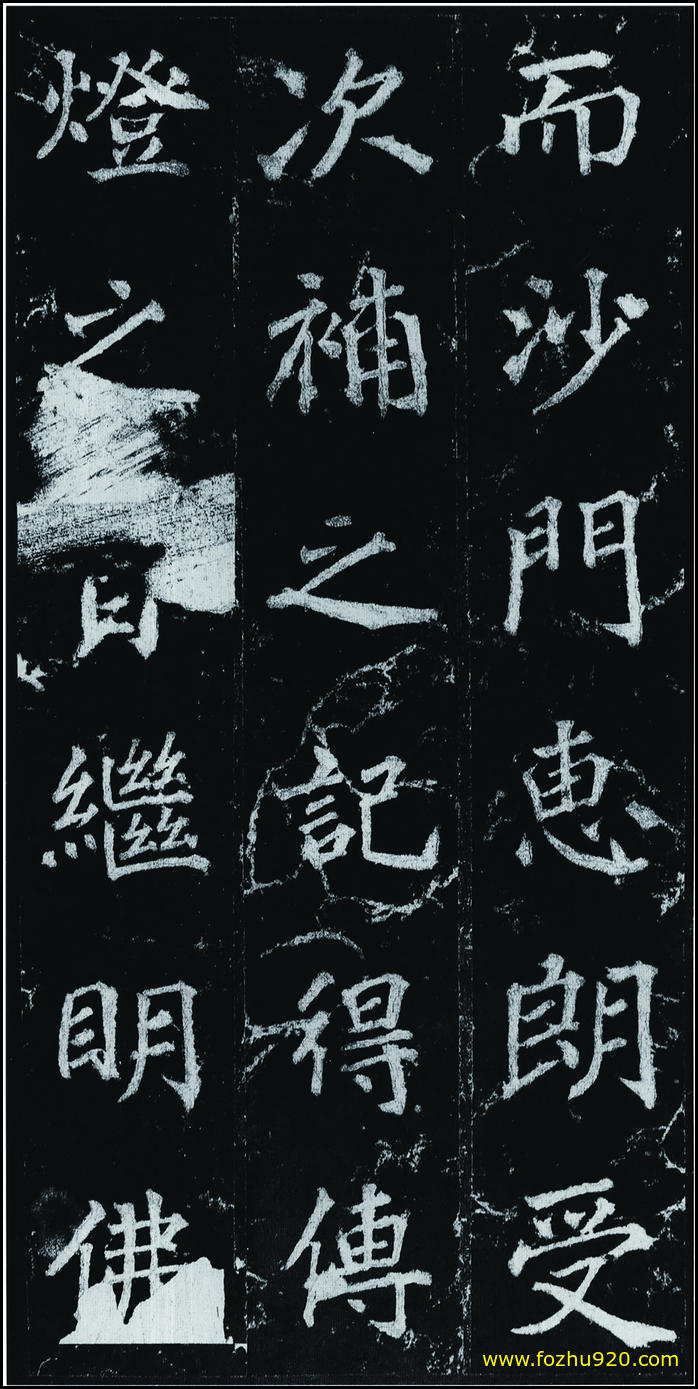 而沙門惠朗受
次補之記得傳
燈之日繼明佛
www.fozhu920.com